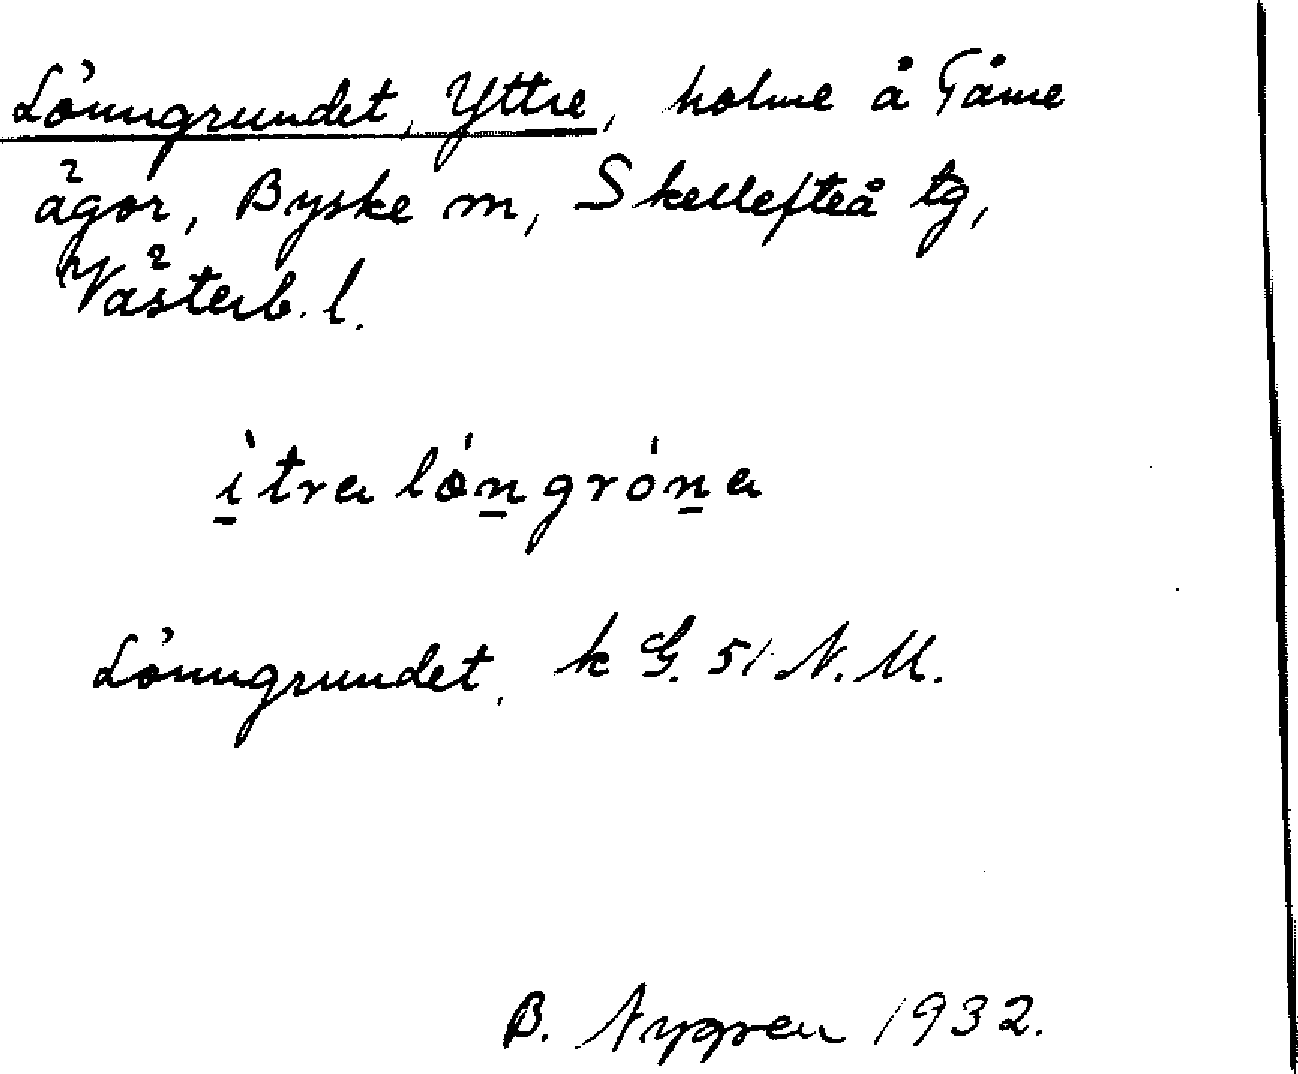 Lönngrundet, Yttre, holme å Tåme
ägor, Byske sn, Skellefteå tg,
Västerb. l.
ìtra lóngróna
Lönngrundet, k G. 51 N. M.
B. Nygren 1932.